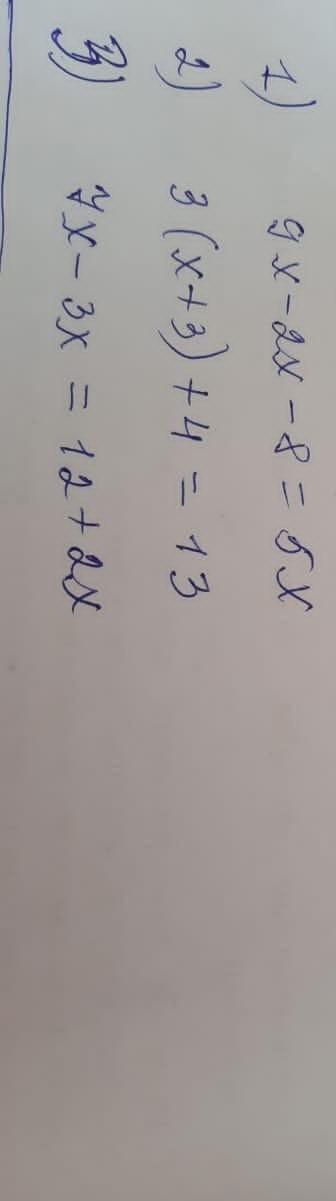 1) 9x - 2x - 8 = 5x
2) 3 (x+3) + 4 = 13
3) 7x - 3x = 12 + 2x